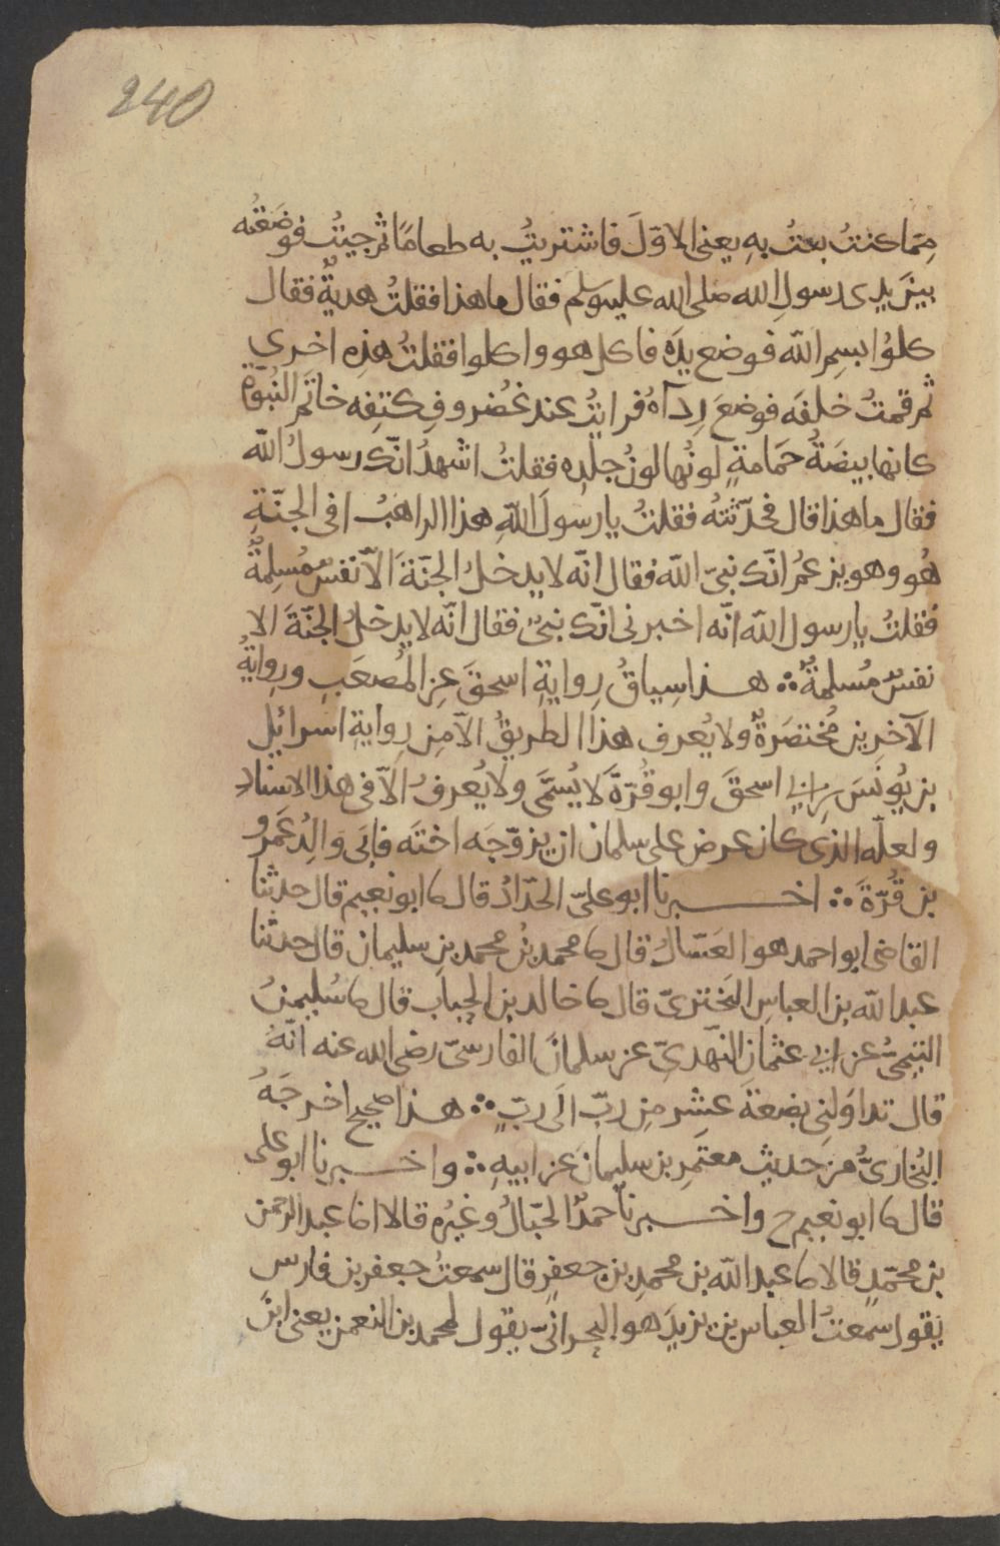 240
مِمّا كنتُ بعتُ بهِ يعني الاوّلَ فاشتريتُ به طعامًا ثم جيتُ فوضَعتُه
بينَ يدي رسولِ الله صلى الله عليه وسلم فقال ما هذا فقلتُ هديةٌ فقال
كلوُا بسمِ الله فوضع يدَه فاكل هو واكلوا فقلتُ هذِه اخري
ثم قمتُ خلفَه فوضعَ رِدآهُ فرايتُ عند غُضروفِ كتفِه خاتَم النُبوّة
كانها بيضَةُ حمَامةٍ لونُها لونُ جلْدِه فقلتُ اشهدُ انّك رسولُ الله
فقال ما هذا قال فحدّثتهُ فقلتُ يا رسولَ اللهِ هذا الراهبُ افي الجنّةِ
هُو وهو يزعمُ انّك نبيّ الله فقال انّه لا يدخلُ الجنّةَ الّا نفسٌ مُسلِمةٌ
فقلتُ يا رسول الله انّه اخبرني انّك نبيٌّ فقال انّه لا يدخلُ الجنّةَ الا
نفسٌ مُسلمةٌ ∴ هـذا سِياقُ رِوايةِ اسحقَ عنِ المُصعَبِ ورِوايةُ
الآخرين مُختصَرةٌ ولا يُعرف هذا الطريقُ الّا مِن رِوايةِ اسرائيل
بن يُونسَ بنِ ابي اسحقَ وابو قُرّةَ لا يُسَمَّى ولا يُعرفُ الّا في هذا الاسنادِ
ولعلّه الذي كان عرض على سلمان ان يزوّجَه اختَه فابَى وَالِدُ عَمرو
بن قُرّةَ ∴ اخـبرنا ابو عليّ الحدّادُ قال نا ابو نعيم قال حدثنا
القاضي ابو احمد هو العَسّالُ قال نا محمد بنُ محمد بنِ سليمان قال حدثنا
عبد الله بن العباسِ البَختريّ قال نا خالد بن الحباب قال نا سُليمنُ
التيميُّ عن ابي عثمانَ النَّهديّ عن سلمانَ الفارسيّ رضي الله عنه انّهُ
قال تداوَلني بضعةَ عشر مِن ربّ الَى ربّ ∴ هـذا صحيح اخرجَهُ
البُخاريُّ من حديثِ معتَمرِ بن سليمانَ عن ابيهِ ∴ واخـبرنا ابو على
قال نا ابو نعيم ح واخـبرنا حمدٌ الحبّالُ وغيرُه قالا انا عبد الرحمن
بن محمّدٍ قالا نا عبد الله بن محمدِ بن جعفرٍ قال سمعتُ جعفر بن فارس
يقول سمعتُ العباس بن يزيدَ هو البحرانيّ يقول لمحمد بن النعمن يعني ابنَ